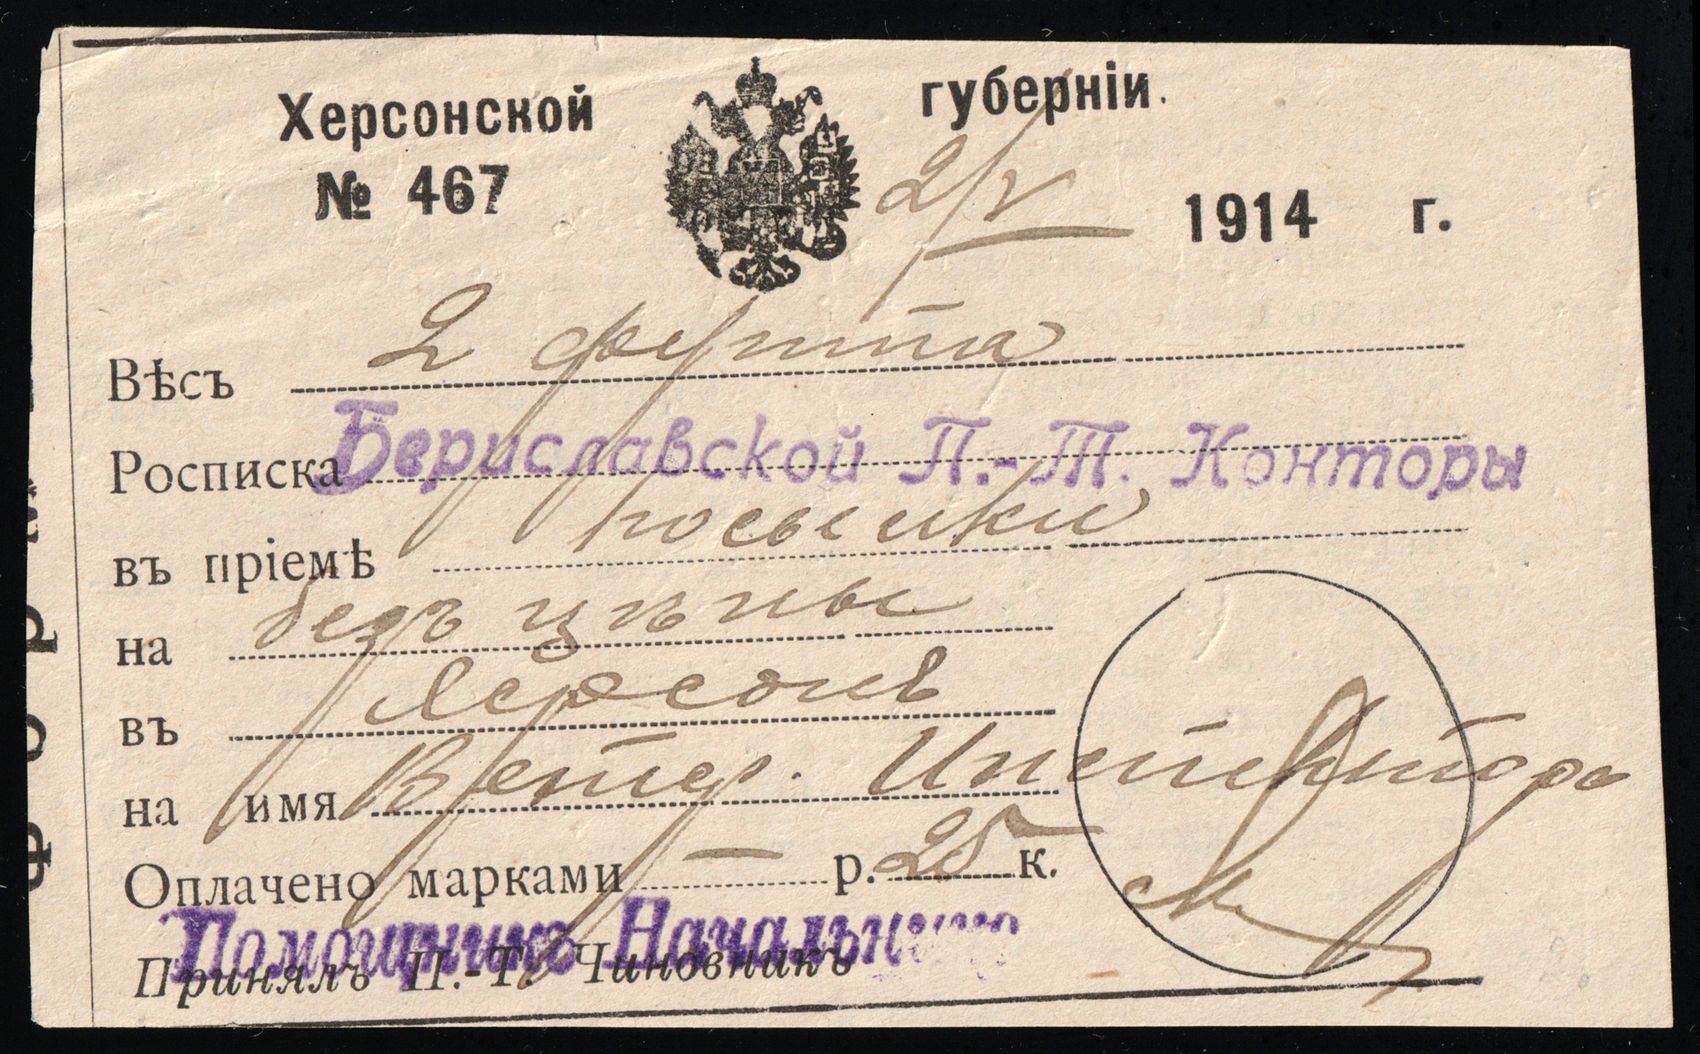 Херсонской губерніи.
№ 467 2/V 1914 г.
Вѣсъ 2 фунта
Росписка Бериславской П.-Т. Конторы
въ пріемѣ посылки
на безъ цѣны
въ Херсонъ
на имя Ветер. Инспектора
Оплачено марками — р. 25 к.
Помощникъ Начальника
Принялъ П.-Т. Чиновникъ